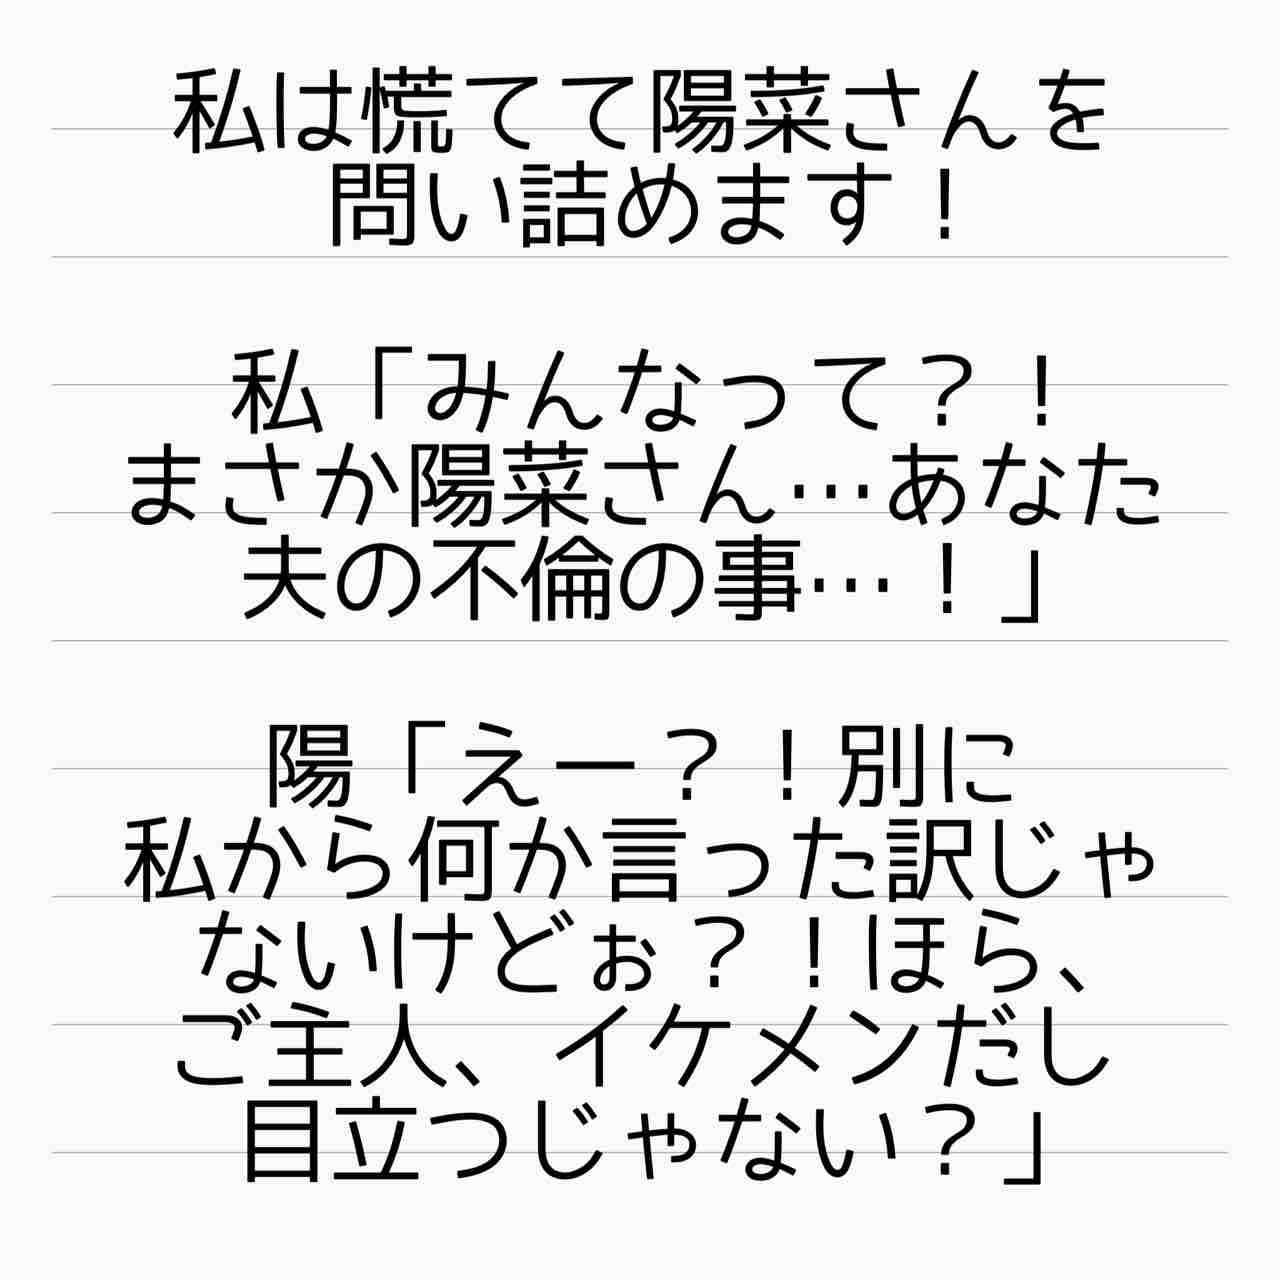 私は慌てて陽菜さんを
問い詰めます！
私「みんなって？！
まさか陽菜さん…あなた
夫の不倫の事…！」
陽「えー？！別に
私から何か言った訳じゃ
ないけどぉ？！ほら、
ご主人、イケメンだし
目立つじゃない？」